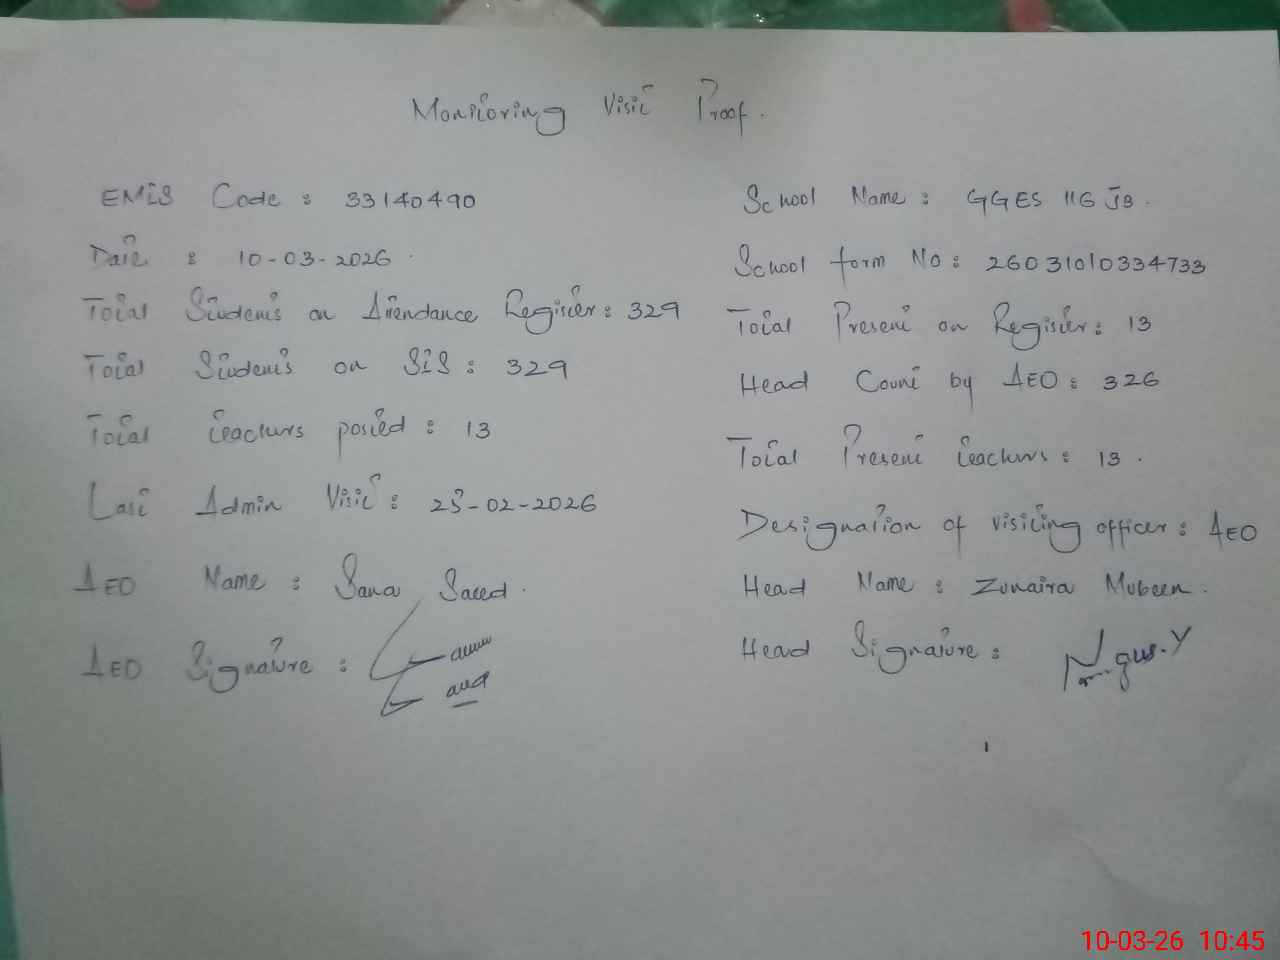 Monitoring Visit Proof.
EMIS Code : 33140490
School Name : GGES 116 JB.
Date : 10-03-2026.
School form No : 26031010334733
Total Students on Attendance Register : 329
Total Present on Register : 13
Total Students on SIS : 329
Head Count by AEO : 326
Total teachers posted : 13
Total Present teachers : 13.
Last Admin Visit : 23-02-2026
Designation of visiting officer : AEO
AEO Name : Sana Saeed.
Head Name : Zunaira Mubeen.
AEO Signature :
Head Signature :
10-03-26 10:45